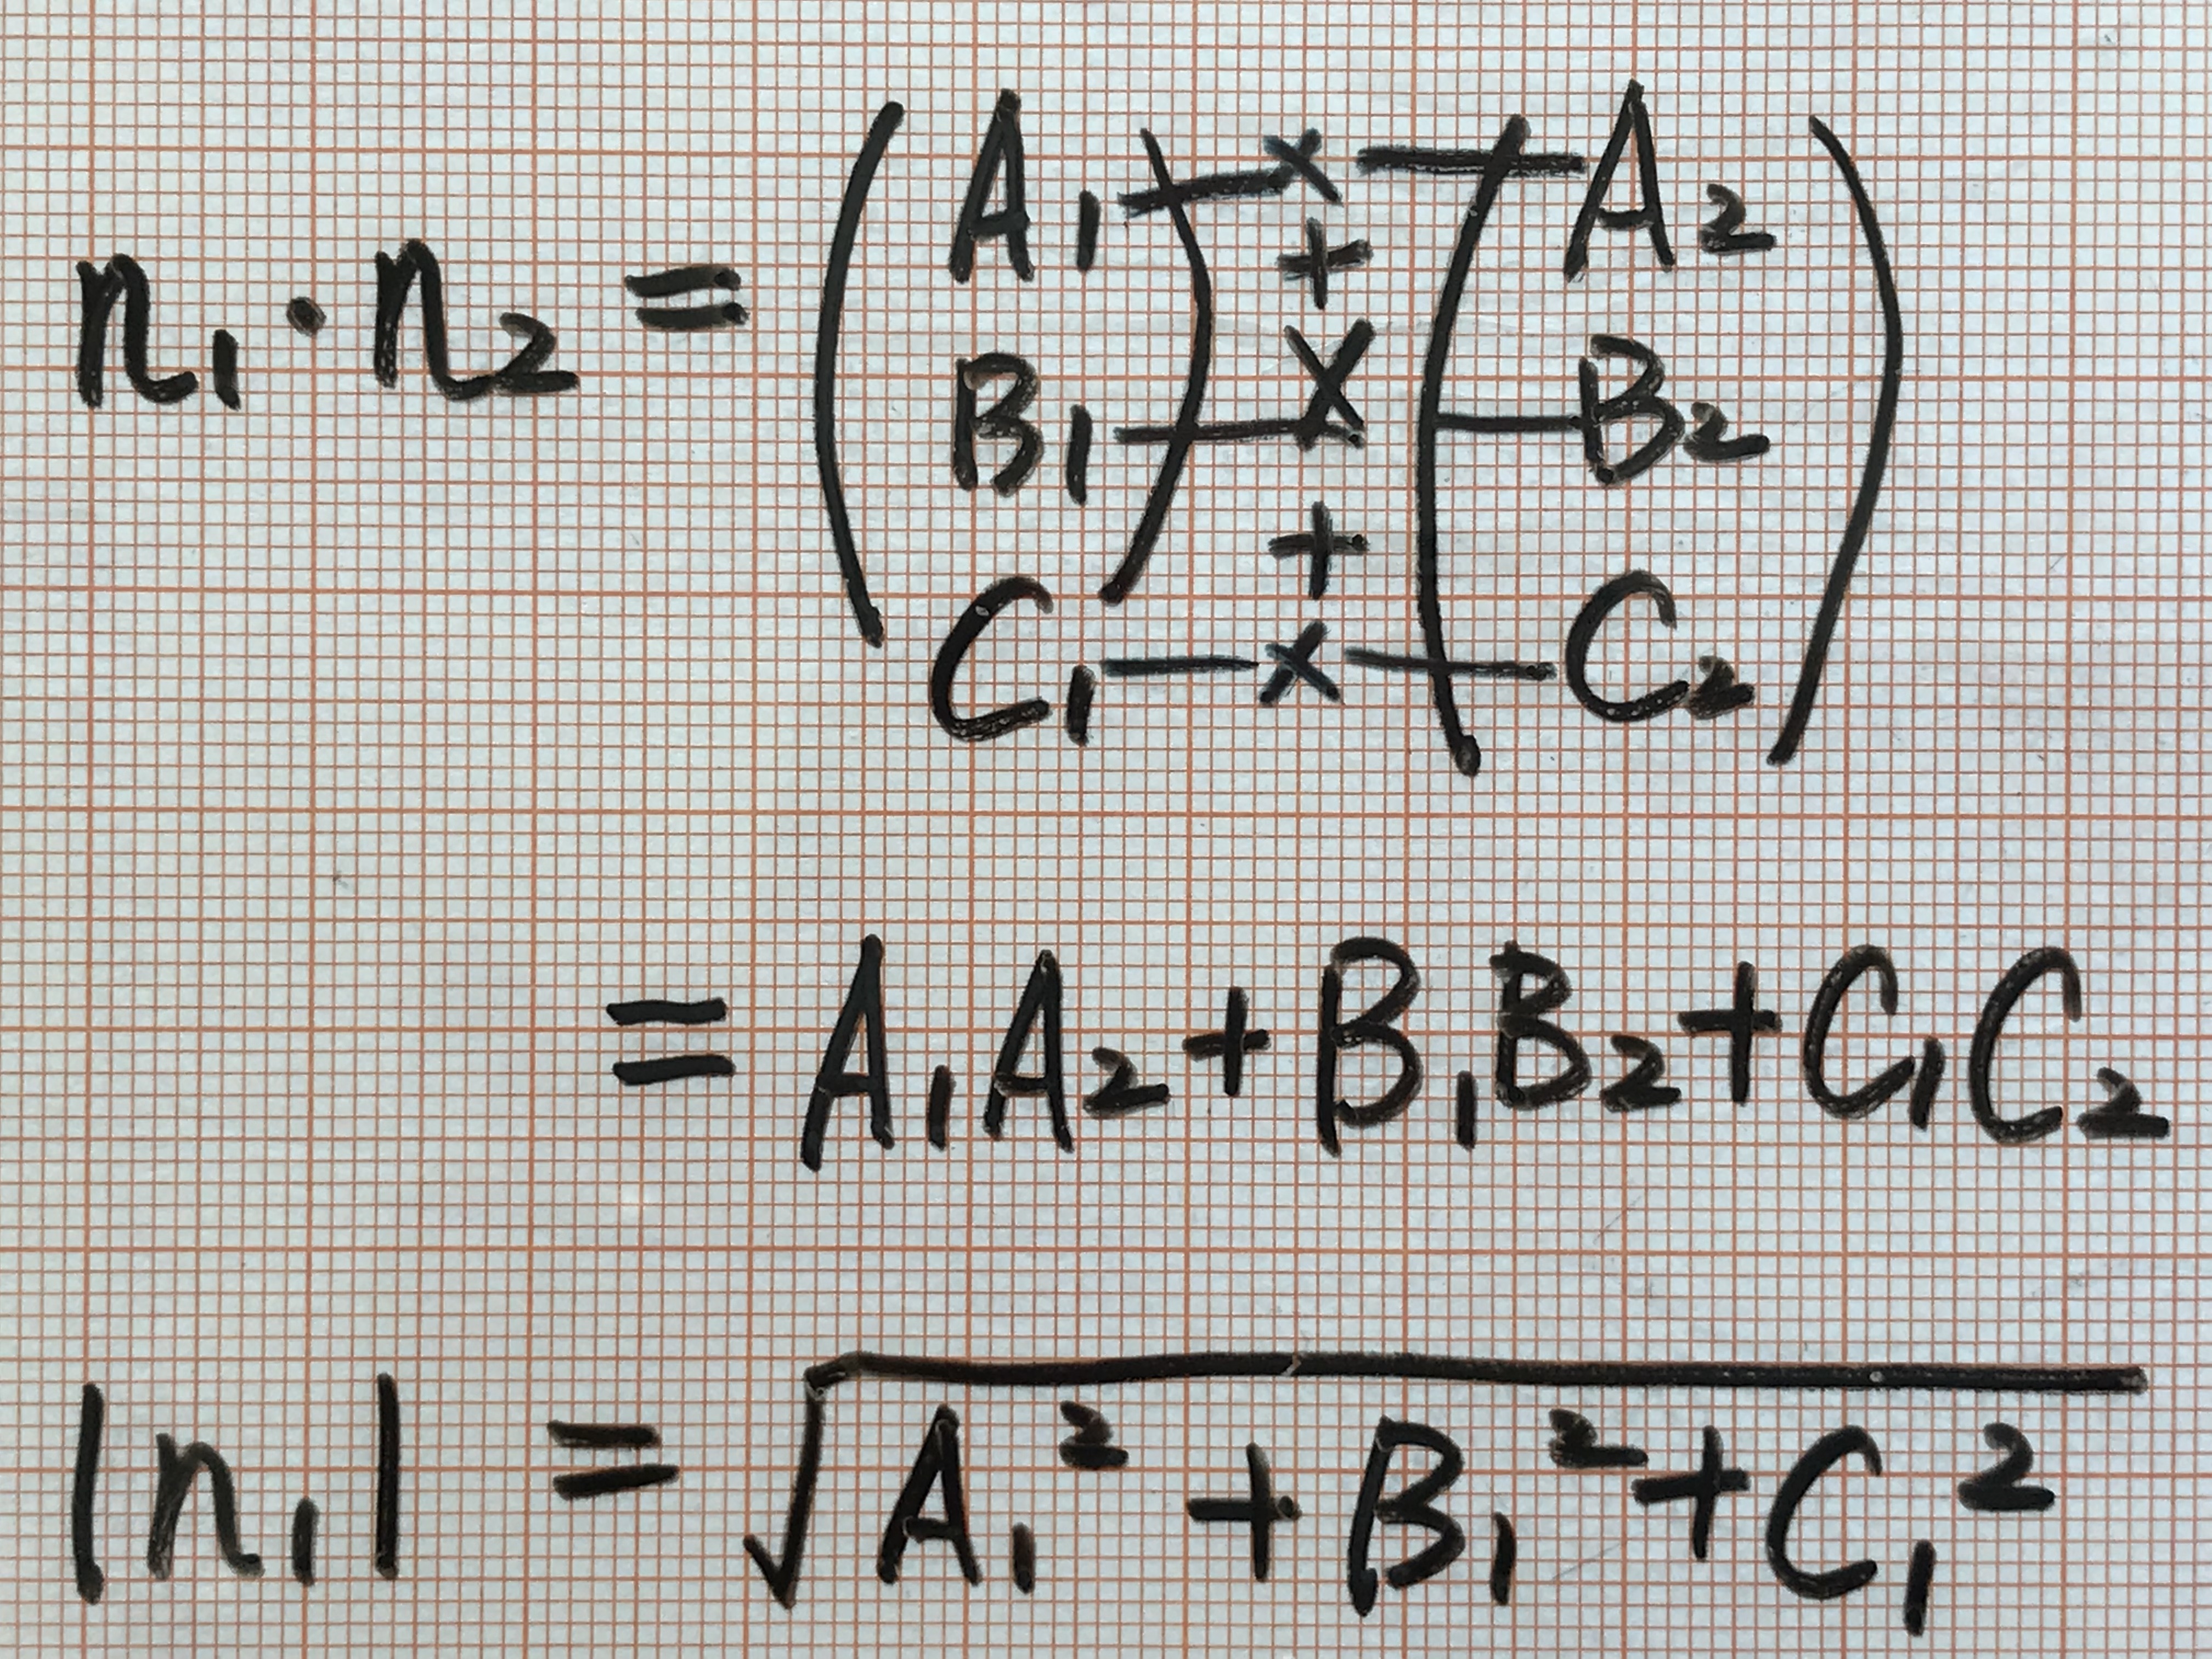 n₁·n₂ = (A₁ — × — (A₂
+
B₁) — × — B₂)
+
C₁ — × — C₂
= A₁A₂+B₁B₂+C₁C₂
|n₁| = √(A₁²+B₁²+C₁²)